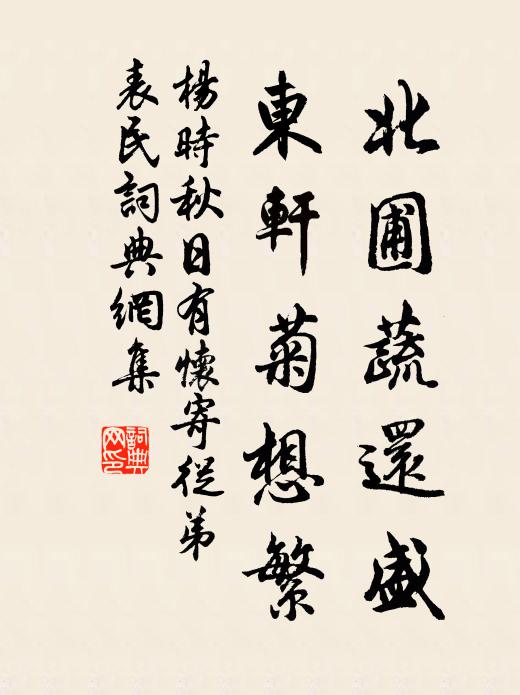 北圃蔬還盛
東軒菊想繁
楊時秋日有懷寄從弟
表民詞典網集
詞典
网印